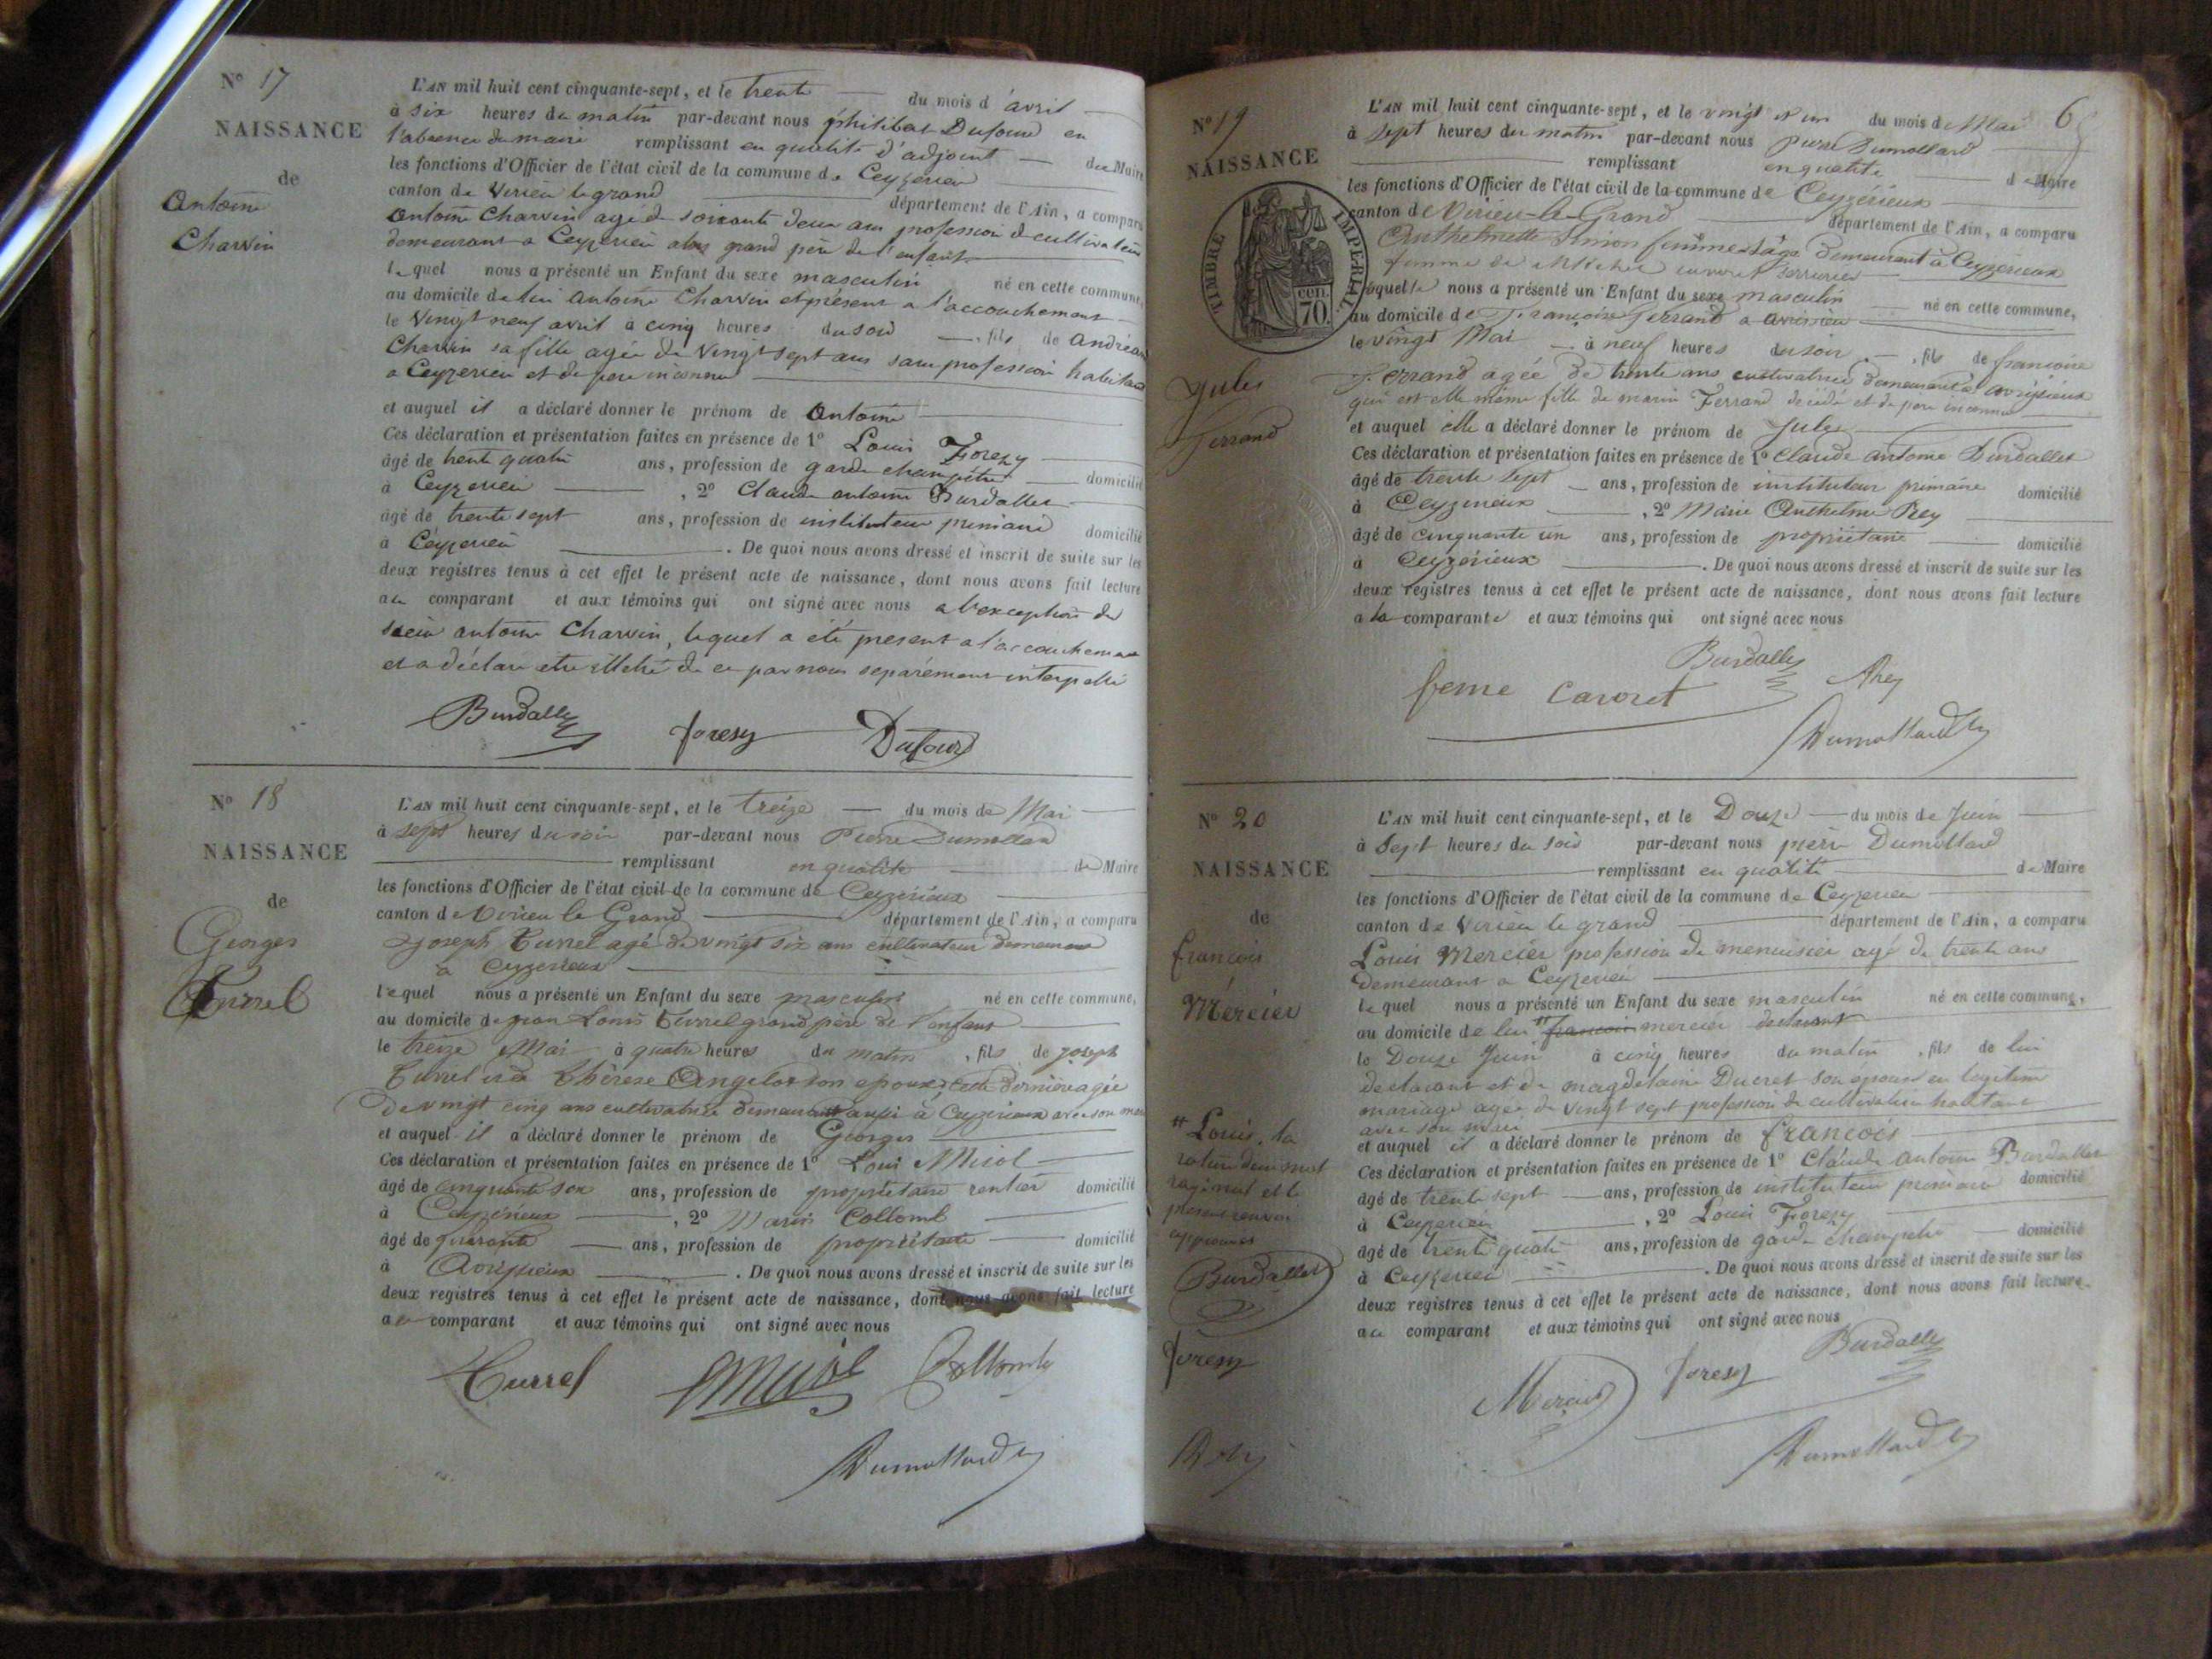 N° 17
NAISSANCE
de
Antoine
Charvin
L'AN mil huit cent cinquante-sept, et le trente du mois d'avril
à six heures du matin par-devant nous philibert Dufour en
l'absence du maire remplissant en qualité d'adjoint du Maire
les fonctions d'Officier de l'état civil de la commune de Ceyzerieu
canton de Virieu le grand département de l'Ain, a comparu
Antoine Charvin agé de soixante deux ans profession de cultivateur
demeurant a Ceyzerieu grand père de l'enfant
lequel nous a présenté un Enfant du sexe masculin né en cette commune,
au domicile de lui Antoine Charvin et présent a l'accouchement
le Vingt neuf avril à cinq heures du soir fils de
Charvin sa fille agée de Vingt sept ans sans profession habitant
a Ceyzerieu et de père inconnu
et auquel il a déclaré donner le prénom de Antoine
Ces déclaration et présentation faites en présence de 1° Louis Foresy
âgé de trente quatre ans, profession de garde champêtre domicilié
à Ceyzerieu , 2° Claude antoine Burdallet
âgé de trente sept ans, profession de instituteur primaire domicilié
à Ceyzerieu . De quoi nous avons dressé et inscrit de suite sur les
deux registres tenus à cet effet le présent acte de naissance, dont nous avons fait lecture
au comparant et aux témoins qui ont signé avec nous a l'exception de
antoine Charvin, lequel a été present a l'accouchement
et a déclaré etre illetré de ce par nous separément interpellé
Burdallet
foresy
Dufour
N° 18
NAISSANCE
de
Georges
Currel
L'AN mil huit cent cinquante-sept, et le treize du mois de Mai
à sept heures du soir par-devant nous Pierre Dumollard
remplissant en qualité de Maire
les fonctions d'Officier de l'état civil de la commune de Ceyzérieux
canton de Virieu le Grand département de l'Ain, a comparu
Joseph Currel agé de vingt six ans cultivateur demeurant
à Ceyzerieux
lequel nous a présenté un Enfant du sexe masculin né en cette commune,
au domicile de jean Louis Currel grand père de l'enfant
le treize Mai à quatre heures du matin , fils de joseph
Currel et de Thérèse Angelot son epouse, cette dernière agée
de vingt cinq ans cultivatrice demeurant aussi à Ceyzerieux avec son mari
et auquel il a déclaré donner le prénom de Georges
Ces déclaration et présentation faites en présence de 1° Loui Misol
âgé de cinquante six ans, profession de propriétaire rentier domicilié
à Ceyzérieux , 2° Marin Collomb
âgé de quarante ans, profession de propriétaire domicilié
à Avrissieux . De quoi nous avons dressé et inscrit de suite sur les
deux registres tenus à cet effet le présent acte de naissance, dont nous avons fait lecture
au comparant et aux témoins qui ont signé avec nous
Currel
Misol
Collomb
Dumollard
6
N° 19
NAISSANCE
TIMBRE IMPERIAL
70 cen.
Jules
Ferrand
L'AN mil huit cent cinquante-sept, et le vingt et un du mois de Mai
à sept heures du matin par-devant nous Pierre Dumollard
remplissant en qualité de Maire
les fonctions d'Officier de l'état civil de la commune de Ceyzérieux
canton de Virieu-le-Grand département de l'Ain, a comparu
Anthelmette Simon femme sage demeurant à Ceyzerieux
femme de Michel serrurier
laquelle nous a présenté un Enfant du sexe masculin né en cette commune,
au domicile de Françoise Ferrand a
le vingt Mai à neuf heures du soir , fils de françoise
Ferrand agée de trente ans cultivatrice demeurant à avrissieux
qui est elle même fille de marin Ferrand décédé et de père inconnu
et auquel elle a déclaré donner le prénom de Jules
Ces déclaration et présentation faites en présence de 1° Claude antoine Burdallet
âgé de trente sept ans, profession de instituteur primaire domicilié
à Ceyzerieux , 2° Marie Anthelme Rey
âgé de cinquante un ans, profession de propriétaire domicilié
à Ceyzérieux . De quoi nous avons dressé et inscrit de suite sur les
deux registres tenus à cet effet le présent acte de naissance, dont nous avons fait lecture
a la comparante et aux témoins qui ont signé avec nous
Burdallet
feme
Rey
Dumollard
N° 20
NAISSANCE
de
francois
Mercier
L'AN mil huit cent cinquante-sept, et le Douze du mois de Juin
à Sept heures du soir par-devant nous pierre Dumollard
remplissant en qualité de Maire
les fonctions d'Officier de l'état civil de la commune de Ceyzerieu
canton de Virieu le grand département de l'Ain, a comparu
Louis Mercier profession de menuisier agé de trente ans
demeurant a Ceyzerieu
lequel nous a présenté un Enfant du sexe masculin né en cette commune,
au domicile de lui francois mercier declarant
le Douze Juin à cinq heures du matin , fils de lui
declarant et de magdelaine Ducret son épouse en legitime
mariage agée de Vingt sept profession de cultivateur habitant
avec son mari
et auquel il a déclaré donner le prénom de francois
Ces déclaration et présentation faites en présence de 1° Claude antoine Burdallet
âgé de trente sept ans, profession de instituteur primaire domicilié
à Ceyzerieu , 2° Louis Foresy
âgé de trente quatre ans, profession de garde champetre domicilié
à Ceyzerieu . De quoi nous avons dressé et inscrit de suite sur les
deux registres tenus à cet effet le présent acte de naissance, dont nous avons fait lecture
au comparant et aux témoins qui ont signé avec nous
Louis, la
rature d'un mot
Burdallet
foresy
Mercier
foresy
Burdallet
Dumollard